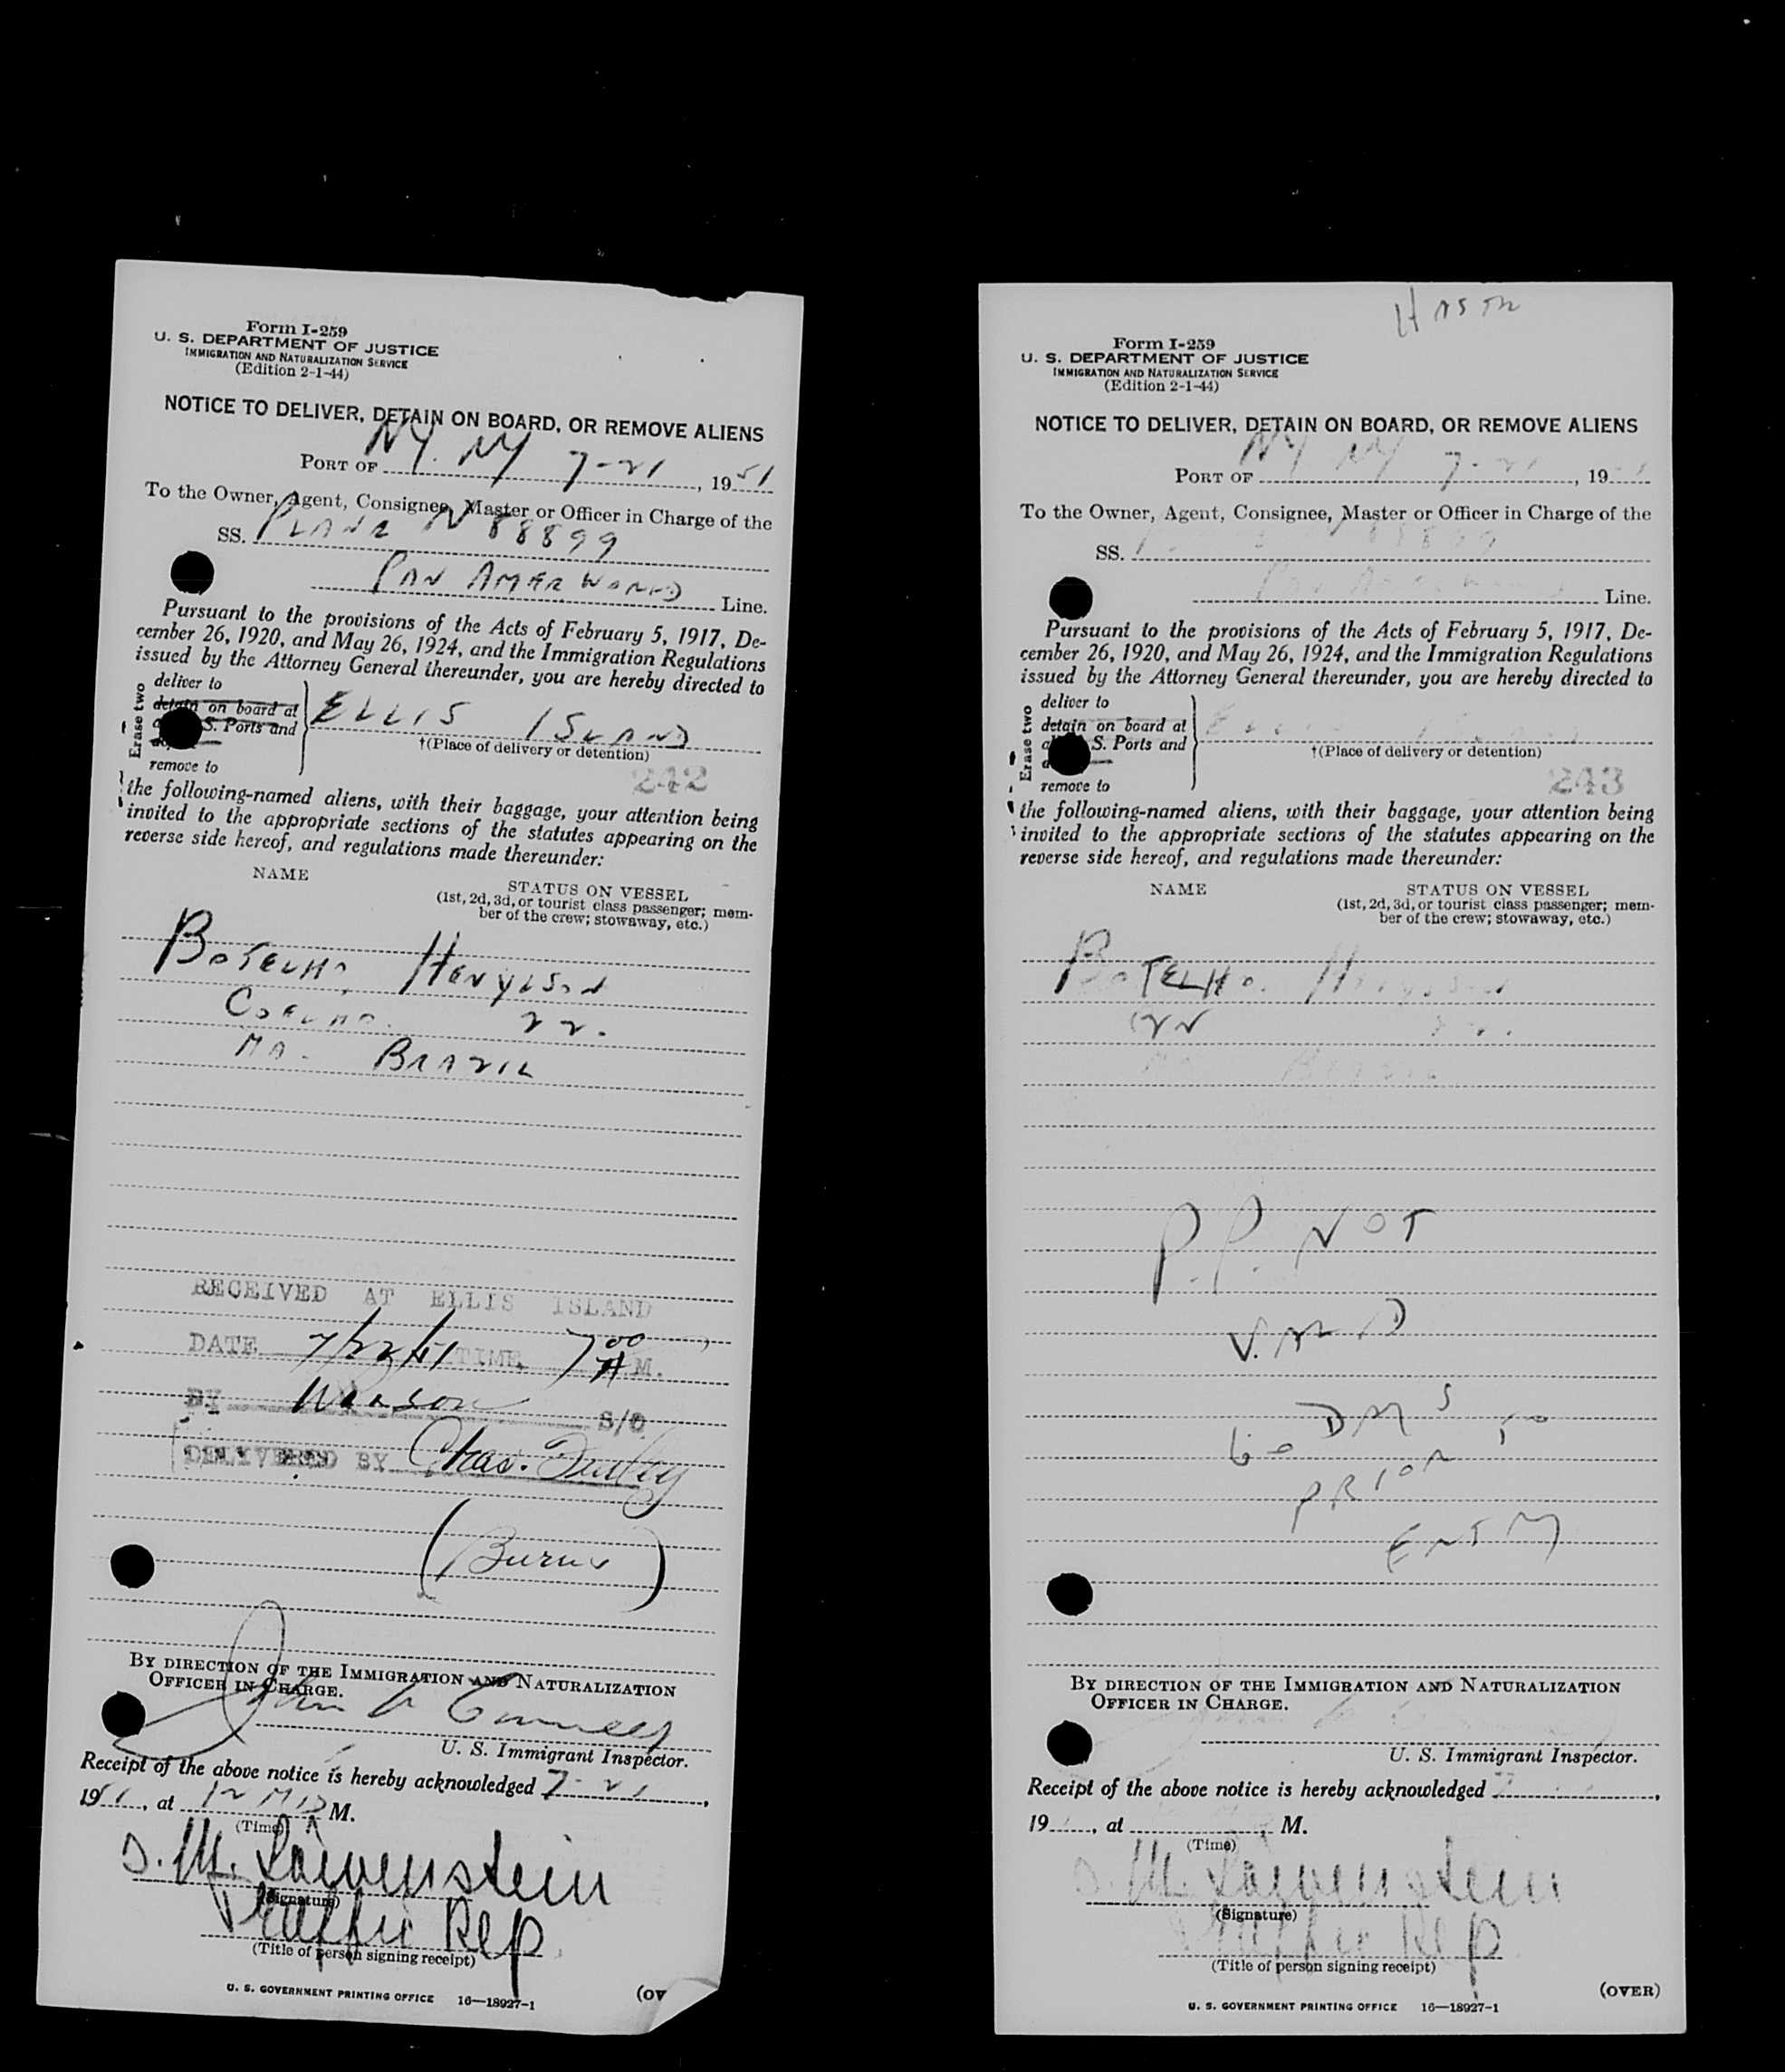 Form I-259
U. S. DEPARTMENT OF JUSTICE
IMMIGRATION AND NATURALIZATION SERVICE
(Edition 2-1-44)
NOTICE TO DELIVER, DETAIN ON BOARD, OR REMOVE ALIENS
PORT OF NY. NY 7-21, 1951
To the Owner, Agent, Consignee, Master or Officer in Charge of the
SS. PLANE N 88899
PAN AMER WORLD Line.
Pursuant to the provisions of the Acts of February 5, 1917, De-
cember 26, 1920, and May 26, 1924, and the Immigration Regulations
issued by the Attorney General thereunder, you are hereby directed to
Erase two
deliver to
detain on board at
S. Ports and
remove to
ELLIS ISLAND
†(Place of delivery or detention)
242
the following-named aliens, with their baggage, your attention being
invited to the appropriate sections of the statutes appearing on the
reverse side hereof, and regulations made thereunder:
NAME
STATUS ON VESSEL
(1st, 2d, 3d, or tourist class passenger; mem-
ber of the crew; stowaway, etc.)
BOTELHO, HENYLSON
COELHO. 22.
MA. BRAZIL
RECEIVED AT ELLIS ISLAND
DATE 7/22/51 TIME 7 00 A M.
BY S/O
DELIVERED BY Chas.
(Burns)
BY DIRECTION OF THE IMMIGRATION AND NATURALIZATION
OFFICER IN CHARGE.
John
U. S. Immigrant Inspector.
Receipt of the above notice is hereby acknowledged 7-21,
1951, at 12 MID M.
(Time)
S. M. Loewenstein
(Signature)
Traffic Rep
(Title of person signing receipt)
U. S. GOVERNMENT PRINTING OFFICE 16—18927-1
(OV
Form I-259
U. S. DEPARTMENT OF JUSTICE
IMMIGRATION AND NATURALIZATION SERVICE
(Edition 2-1-44)
NOTICE TO DELIVER, DETAIN ON BOARD, OR REMOVE ALIENS
PORT OF NY NY 7-21, 19
To the Owner, Agent, Consignee, Master or Officer in Charge of the
SS. 88899
Line.
Pursuant to the provisions of the Acts of February 5, 1917, De-
cember 26, 1920, and May 26, 1924, and the Immigration Regulations
issued by the Attorney General thereunder, you are hereby directed to
Erase two
deliver to
detain on board at
S. Ports and
remove to
†(Place of delivery or detention)
243
the following-named aliens, with their baggage, your attention being
invited to the appropriate sections of the statutes appearing on the
reverse side hereof, and regulations made thereunder:
NAME
STATUS ON VESSEL
(1st, 2d, 3d, or tourist class passenger; mem-
ber of the crew; stowaway, etc.)
BOTELHO.
P.P. NOT
60 DAYS
PRIOR TO
ENTRY
BY DIRECTION OF THE IMMIGRATION AND NATURALIZATION
OFFICER IN CHARGE.
U. S. Immigrant Inspector.
Receipt of the above notice is hereby acknowledged 7
19, at , M.
(Time)
S. M. Loewenstein
(Signature)
Traffic Rep
(Title of person signing receipt)
(OVER)
U. S. GOVERNMENT PRINTING OFFICE 16—18927-1